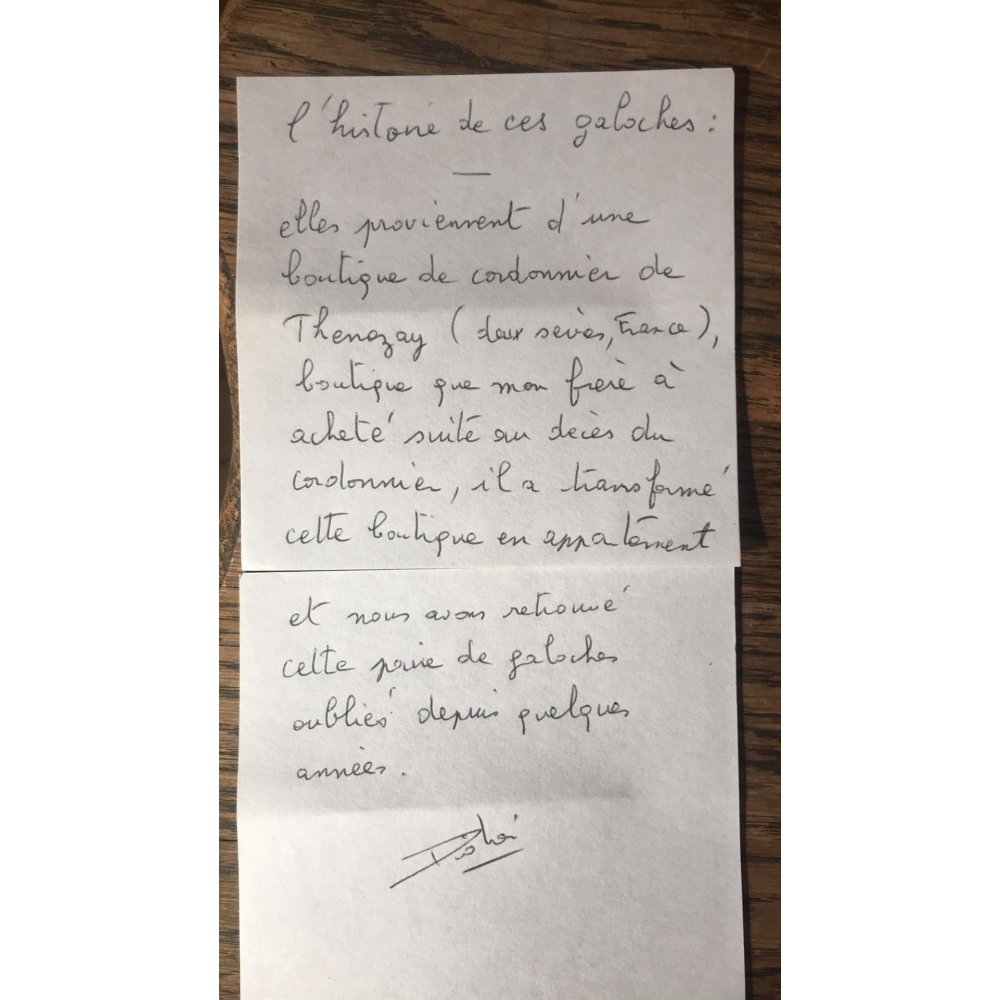 l'histoire de ces galoches :
elles proviennent d'une
boutique de cordonnier de
Thenezay (deux sèvres, France),
boutique que mon frère à
acheté suite au décès du
cordonnier, il a transformé
cette boutique en appartement
et nous avons retrouvé
cette paire de galoches
oubliés depuis quelques
années.